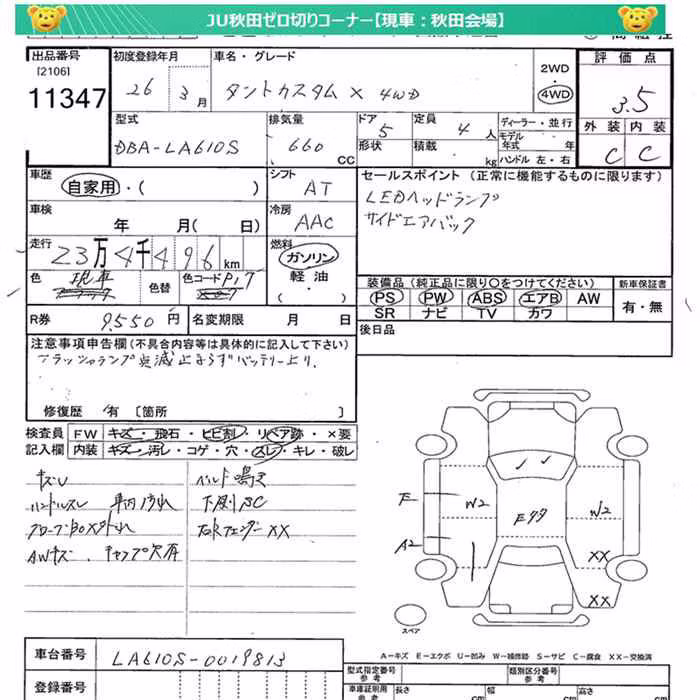 JU秋田ゼロ切りコーナー【現車：秋田会場】
出品番号
[2106]
11347
初度登録年月
26 3月
車名・グレード
タントカスタム X 4WD
2WD
4WD
評価点
3.5
外装 内装
C C
型式
DBA-LA610S
排気量
660 CC
ドア 5
形状
定員 4人
積載 kg
ディーラー・並行
モデル年式 年
ハンドル 左・右
車歴
自家用・( )
シフト
AT
車検
年 月( 日)
冷房
AAC
セールスポイント (正常に機能するものに限ります)
LEDヘッドランプ
サイドエアバック
走行
23万4千496km
燃料
ガソリン
軽油
・( )
色
色替
色コード
装備品 (純正品に限り○をつけてください)
PS PW ABS エアB AW
SR ナビ TV カワ
新車保証書
有・無
R券 9,550円
名変期限 月 日
後日品
注意事項申告欄 (不具合内容等は具体的に記入して下さい)
修復歴 有 [箇所 ]
検査員 FW キズ・飛石・ヒビ割・リペア跡・×要
記入欄 内装 キズ・汚レ・コゲ・穴・スレ・キレ・破レ
キズU
ベルト鳴き
ハンドルスレ
下廻りSC
AWキズ、キャップ欠品
右Rフェンダー XX
F
A2
W2
W2
XX
XX
スペア
A－キズ E－エクボ U－凹み W－補修跡 S－サビ C－腐食 XX－交換済
車台番号 LA610S-0019813
登録番号
型式指定番号
参考
類別区分番号
参考
車庫証明用
参考
長さ cm
幅 cm
高さ cm